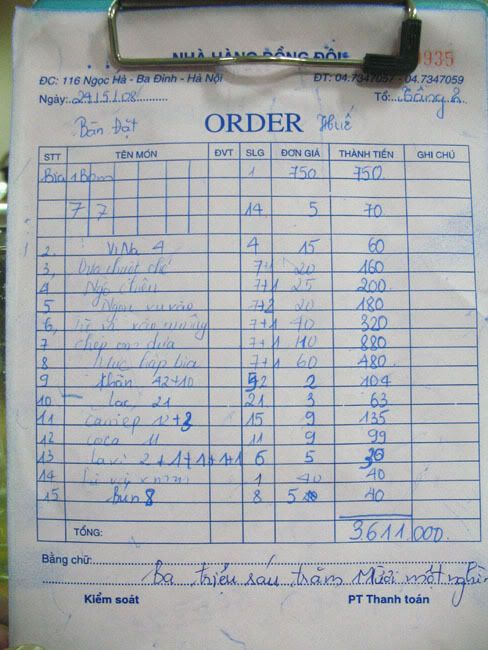 NHÀ HÀNG ĐỒNG ĐỘI 0935
ĐC: 116 Ngọc Hà - Ba Đình - Hà Nội ĐT: 04.7347057 - 04.7347059
Ngày: 29/5/08 Tổ: Tầng 2
Bàn Đặt ORDER Huế
STT TÊN MÓN ĐVT SLG ĐƠN GIÁ THÀNH TIỀN GHI CHÚ
Bia 1 Bom 1 750 750
7 7 14 5 70
2 ViNa 4 4 15 60
3, Dưa chuột chẻ 20 160
4 Ngô chiên 7+1 25 200
5 7+2 20 180
6, 7+1 40 320
7 chép om dưa 7+1 110 880
8 Mực hấp bia 7+1 60 480
9 khăn 42+10 52 2 104
10 Lạc 21 21 3 63
11 12+3 15 9 135
12 coca 11 11 9 99
13 Lavi 2+1+1+1+1 6 5 30
14 1 40 40
15 Bún 8 8 5 40
TỔNG: 3611.000
Bằng chữ:
Ba triệu sáu trăm Mười một nghìn
Kiểm soát PT Thanh toán